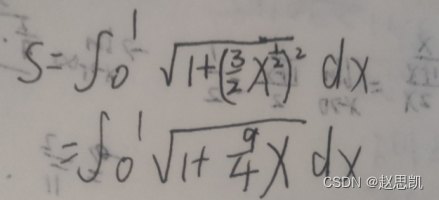 S=∫₀¹ √(1+(3/2 x^(1/2))²) dx
=∫₀¹ √(1+ 9/4 x) dx
CSDN @赵思凯